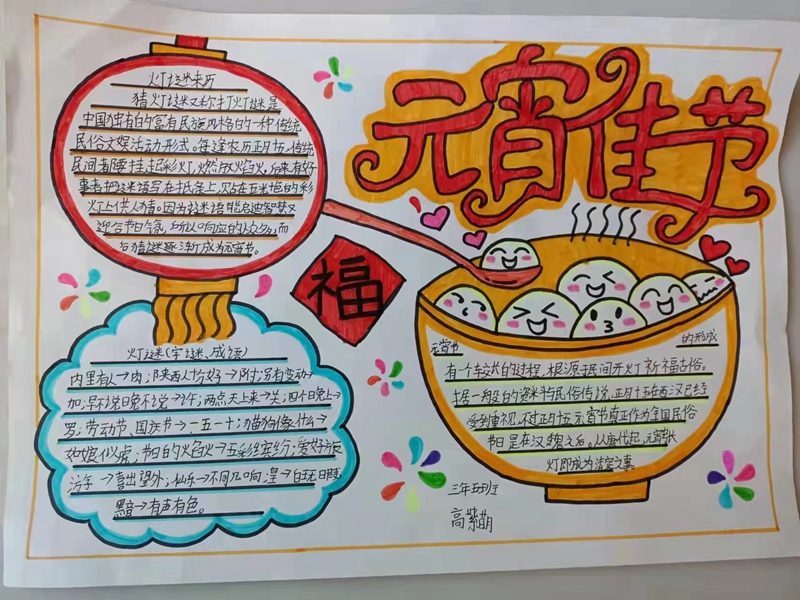 元宵佳节
灯谜来历
猜灯谜又称打灯谜是
中国独有的富有民族风格的一种传统
民俗文娱活动形式。每逢农历正月十五,传统
民间都要挂起彩灯,燃放焰火,后来有好
事者把谜语写在纸条上,贴在五光十色的彩
灯上供人猜。因为谜语能启迪智慧又
迎合节日气氛,所以响应的人众多,而
后猜谜逐渐成为元宵节。
福
灯谜(字谜、成语)
内里有人→肉;陕西人十分好→附;没有变动→
加;早不说晚不说→许;两点天上来→关;四个晚上→
罗;劳动节、国庆节→一五一十;猫狗像什么→
如狼似虎;节日的焰火→五彩缤纷;爱好旅
游→喜出望外;仙乐→不同凡响;皇→白玉无瑕
黯→有声有色。
元宵节的形成
有一个较长的过程,根源于民间开灯祈福古俗。
据一般的资料与民俗传说,正月十五在西汉已经
受到重视,不过正月十五元宵节真正作为全国民俗
节日是在汉魏之后。从唐代起,元宵张
灯即成为法定之事。
三年五班
高紫萌